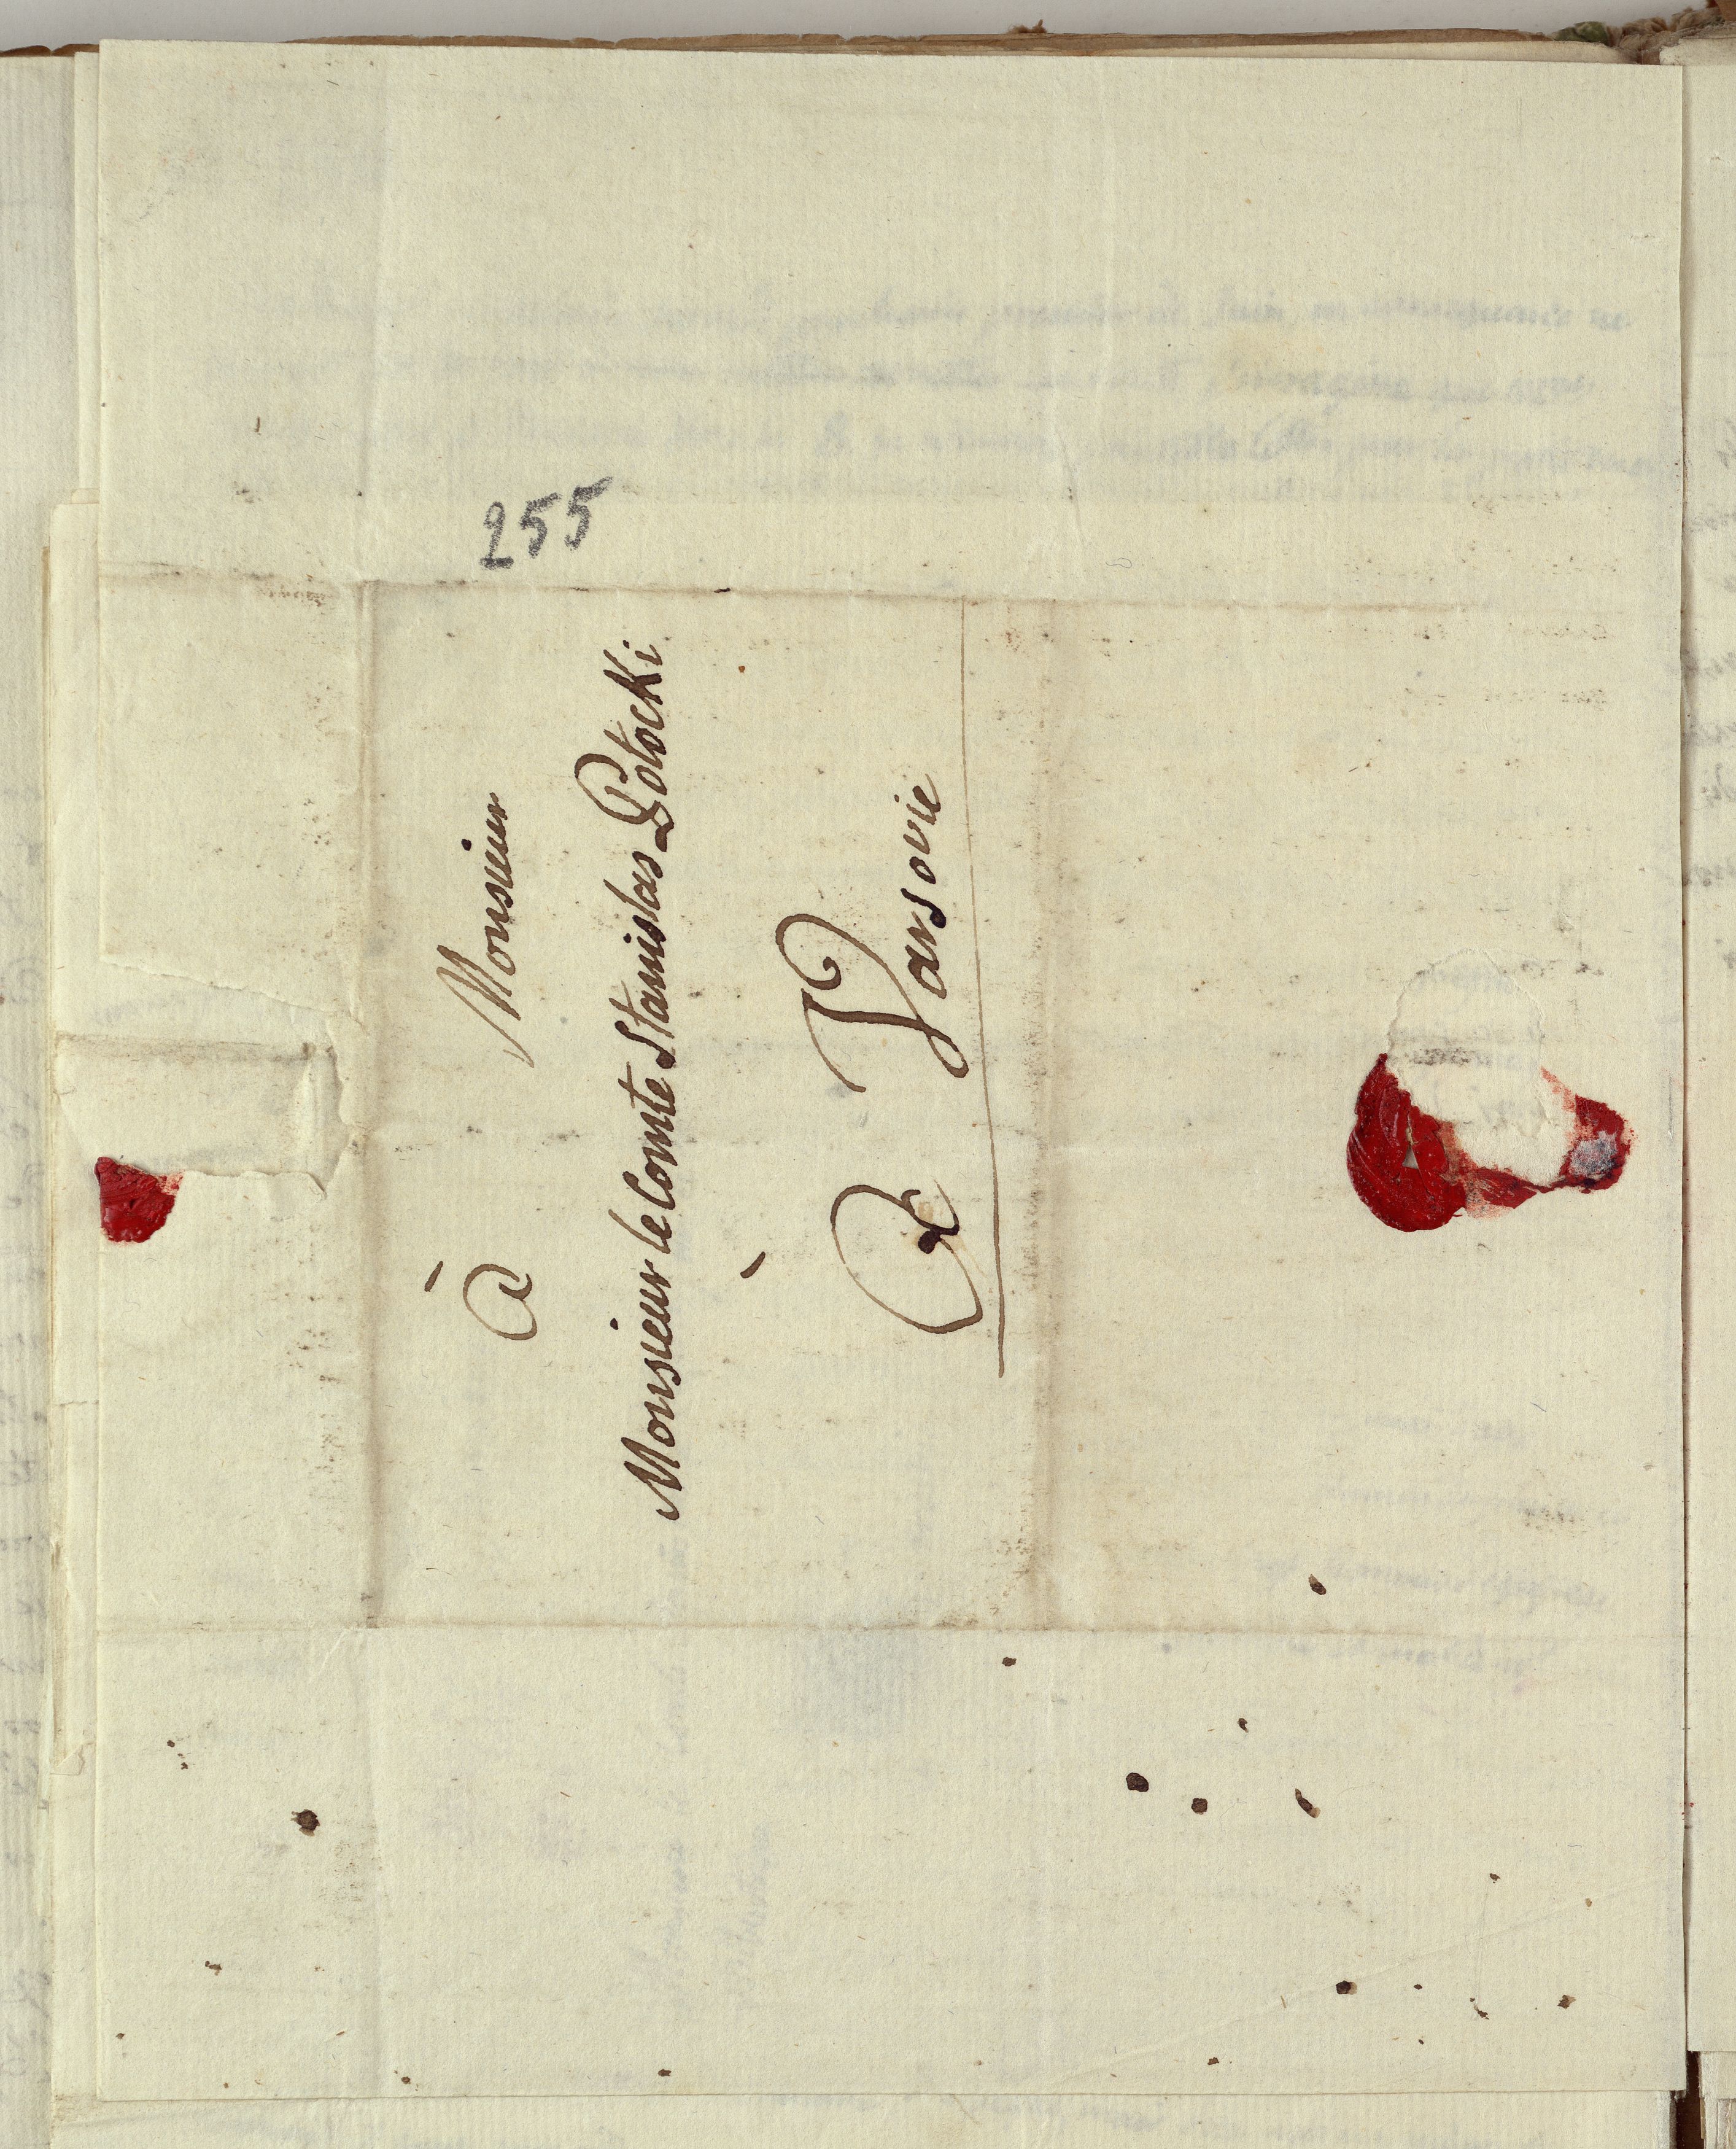 255
à Monsieur
Monsieur le Comte Stanislas Potocki
à Varsovie